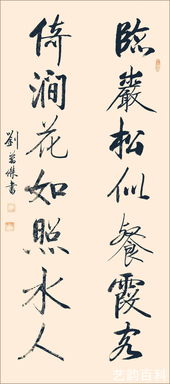 臨巖松似餐霞客
倚澗花如照水人
劉若傑書
艺韵百科